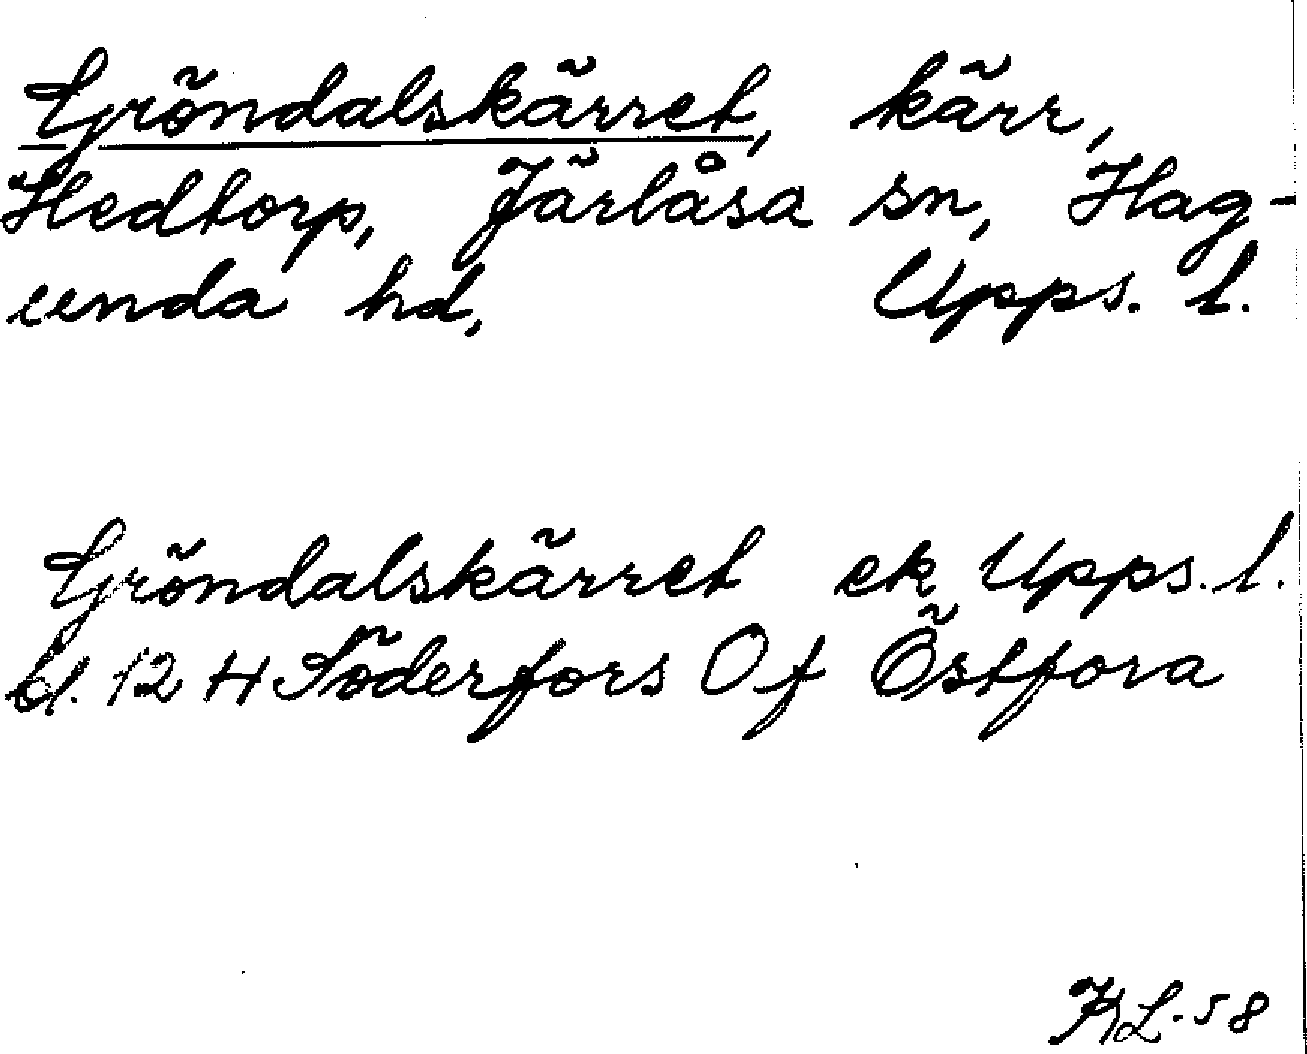 Gröndalskärret, kärr,
Hedtorp, Järlåsa sn, Hag-
unda hd, Upps. l.
Gröndalskärret ek Upps. l.
bl. 12 H Söderfors Of Östfora
KL-58